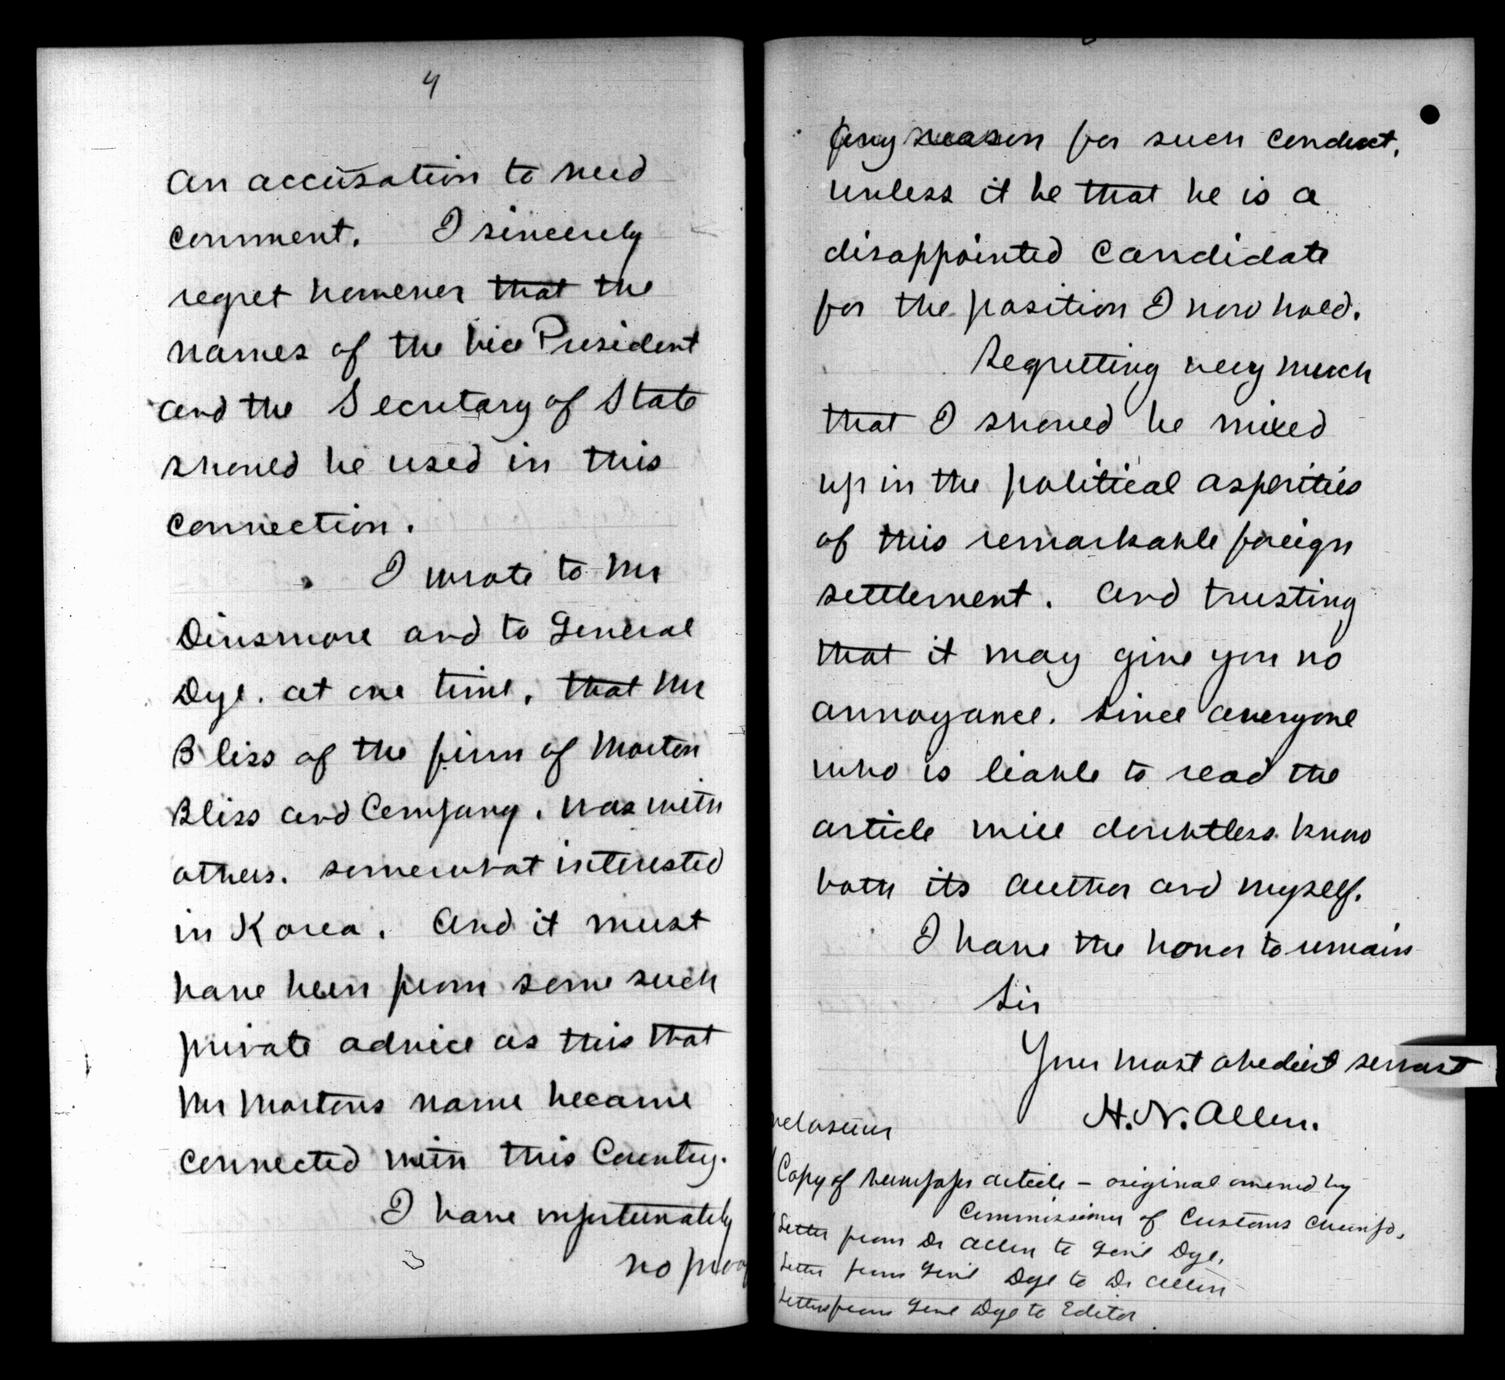 4
an accusation to need
comment. I sincerely
regret however that the
names of the Vice President
and the Secretary of State
should be used in this
connection.
I wrote to Mr
Dinsmore and to General
Dye. at one time, that Mr
Bliss of the firm of Morton
Bliss and Company, was with
others. somewhat interested
in Korea. And it must
have been from some such
private advice as this that
Mr Mortons name became
connected with this Country.
I have unfortunately
no proof
any reason for such conduct,
unless it be that he is a
disappointed candidate
for the position I now hold.
Regretting very much
that I should be mixed
up in the political asperities
of this remarkable foreign
settlement. And trusting
that it may give you no
annoyance. Since everyone
who is liable to read the
article will doubtless know
both its author and myself.
I have the honor to remain
Sir
Your most obedient servant
H. N. Allen.
nclosures
Copy of newspaper article - original owned by
Commissioner of Customs Chemfo.
Letter from Dr Allen to Genl Dye.
Letter from Genl Dye to Dr Allen
Letters from Genl Dye to Editor